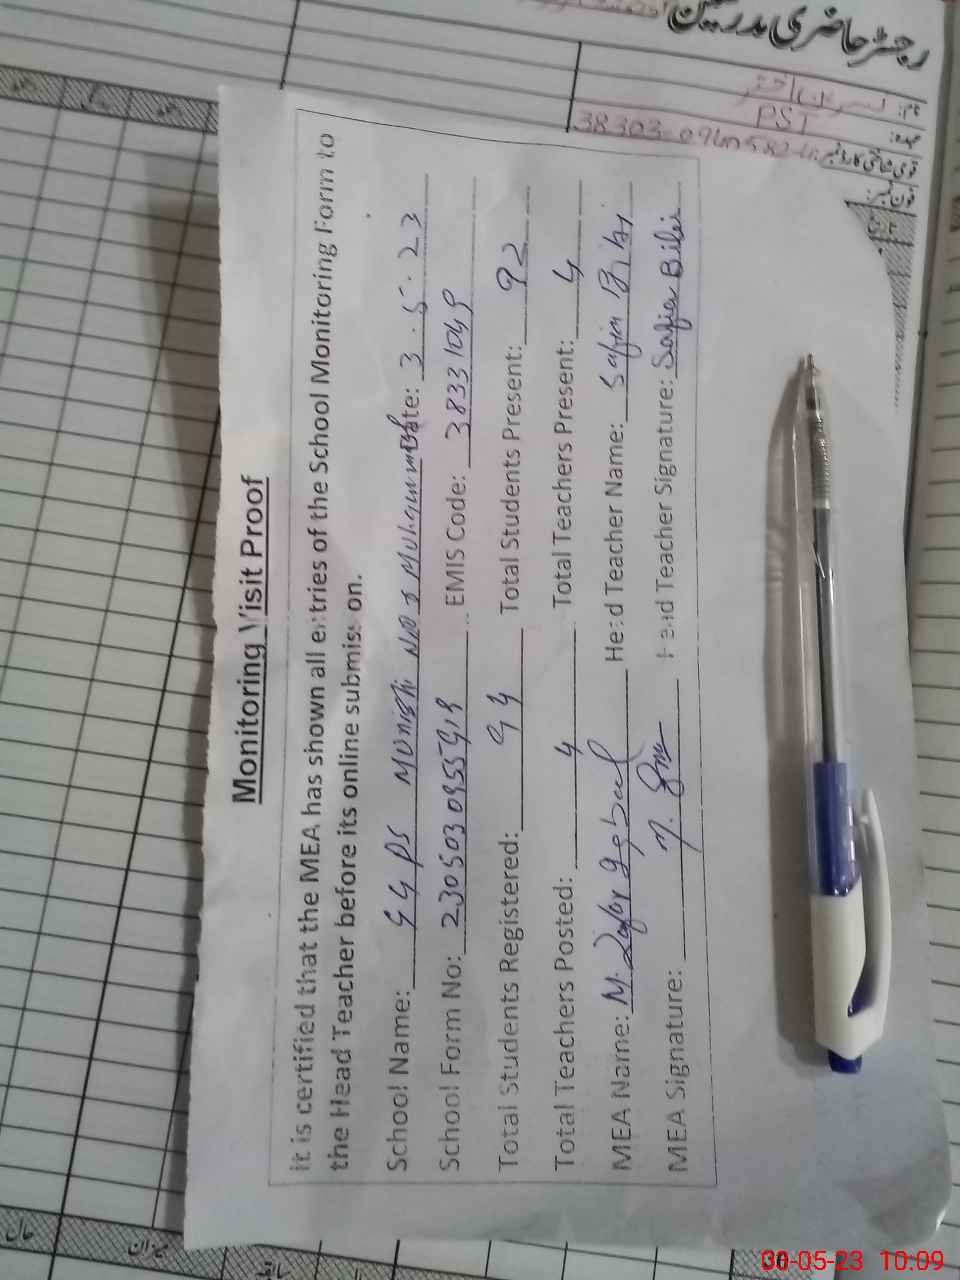 رجسٹر حاضری مدرسین
نام: نسرین اختر
عہدہ: PST
قومی شناختی کارڈ نمبر:
فون نمبر:
تاریخ
Monitoring Visit Proof
It is certified that the MEA has shown all entries of the School Monitoring Form to
the Head Teacher before its online submission.
School Name: GGPS Date: 3.5.23
School Form No: EMIS Code: 38331049
Total Students Registered: 94 Total Students Present: 92
Total Teachers Posted: 4 Total Teachers Present: 4
MEA Name: M. Head Teacher Name: Safia Bibi
MEA Signature: Head Teacher Signature: Safia Bibi
حال
میزان
سابقہ
30-05-23 10:09